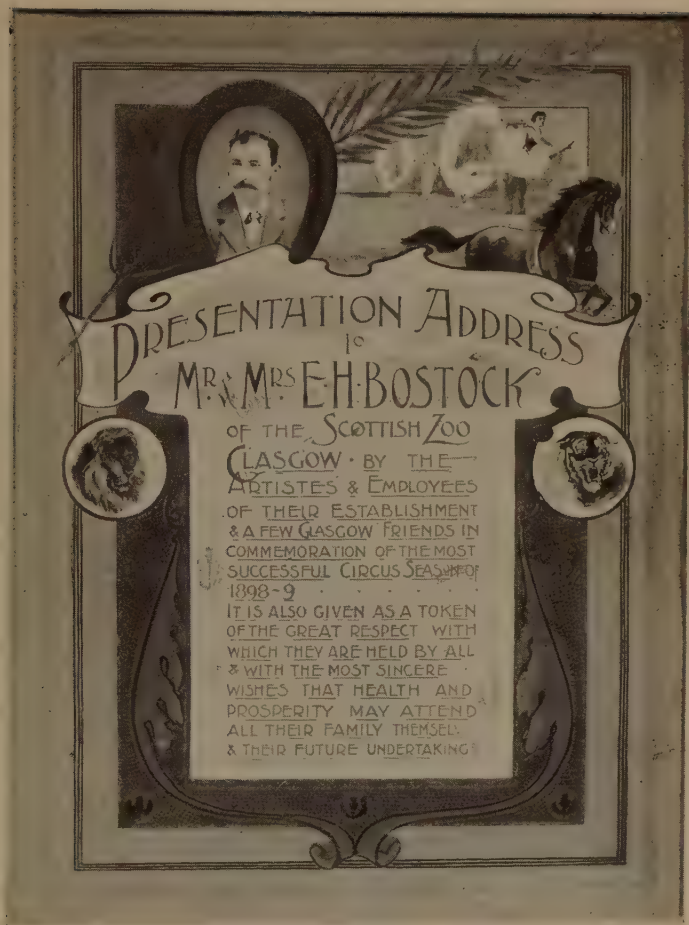 PRESENTATION ADDRESS
TO
MR & MRS E·H·BOSTOCK
OF THE SCOTTISH ZOO
GLASGOW · BY THE
ARTISTES & EMPLOYEES
OF THEIR ESTABLISHMENT
& A FEW GLASGOW FRIENDS IN
COMMEMORATION OF THE MOST
SUCCESSFUL CIRCUS SEASON OF
1898-9 · · · · ·
IT IS ALSO GIVEN AS A TOKEN
OF THE GREAT RESPECT WITH
WHICH THEY ARE HELD BY ALL
& WITH THE MOST SINCERE ·
WISHES THAT HEALTH AND
PROSPERITY MAY ATTEND
ALL THEIR FAMILY
& THEIR FUTURE UNDERTAKINGS